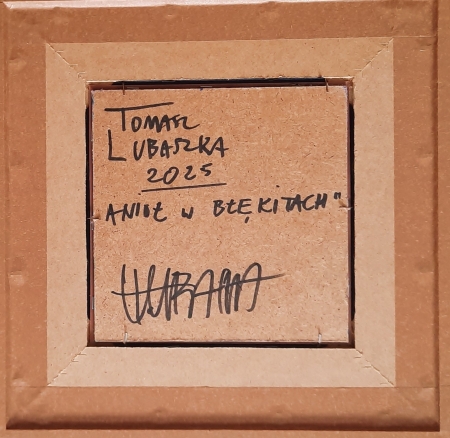 TOMASZ
LUBASZKA
2025
ANIOŁ W BŁĘKITACH"